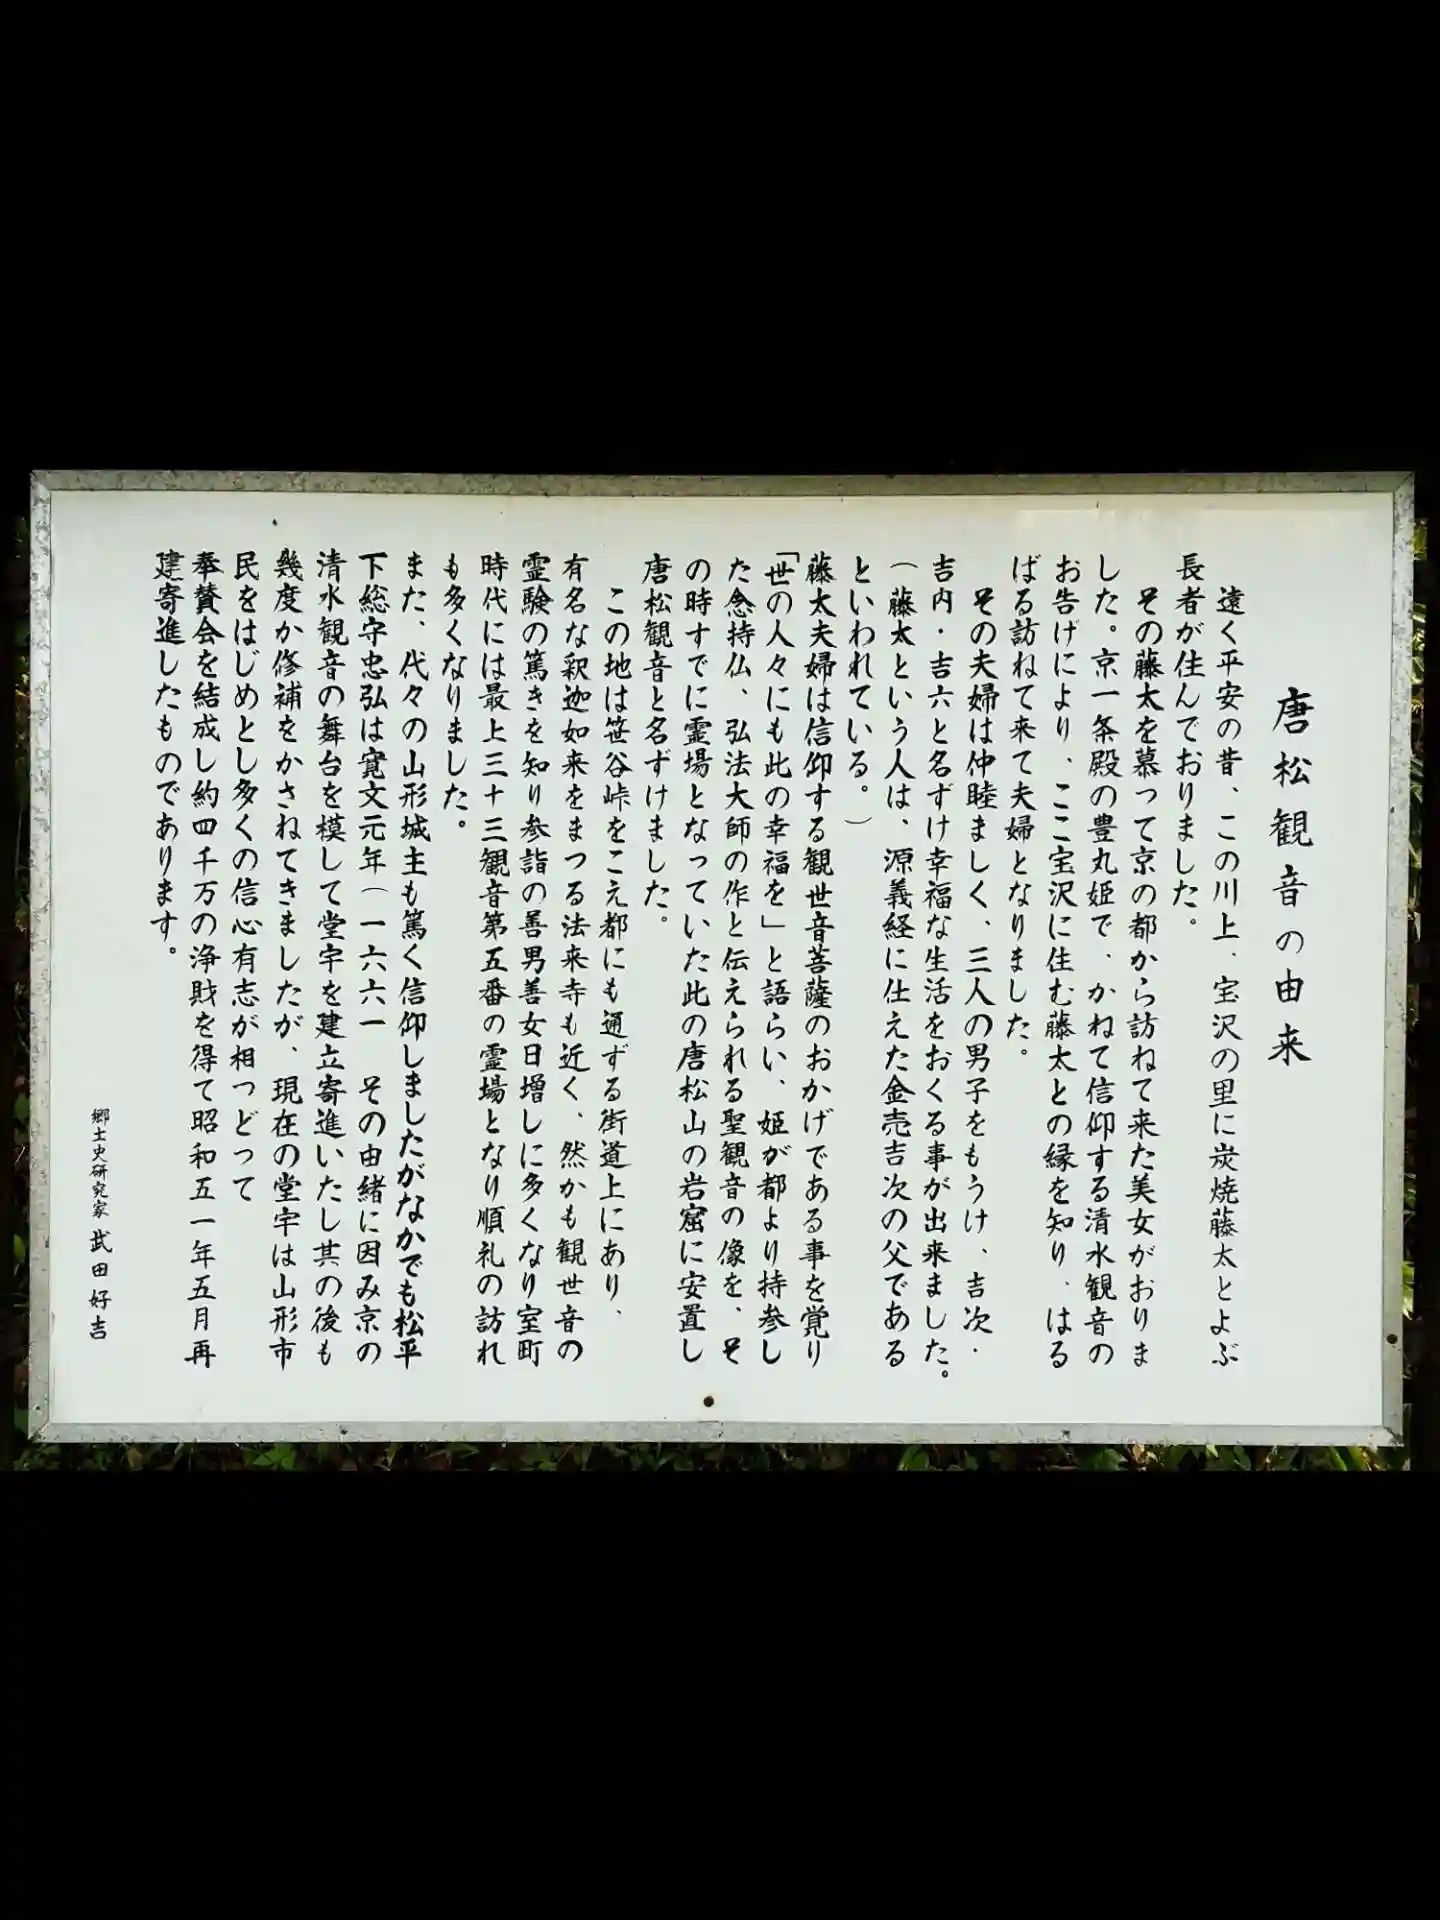 唐松観音の由来
遠く平安の昔、この川上、宝沢の里に炭焼藤太とよぶ
長者が住んでおりました。
その藤太を慕って京の都から訪ねて来た美女がおりま
した。京一条殿の豊丸姫で、かねて信仰する清水観音の
お告げにより、ここ宝沢に住む藤太との縁を知り、はる
ばる訪ねて来て夫婦となりました。
その夫婦は仲睦ましく、三人の男子をもうけ、吉次・
吉内・吉六と名ずけ幸福な生活をおくる事が出来ました。
(藤太という人は、源義経に仕えた金売吉次の父である
といわれている。)
藤太夫婦は信仰する観世音菩薩のおかげである事を覚り
「世の人々にも此の幸福を」と語らい、姫が都より持参し
た念持仏、弘法大師の作と伝えられる聖観音の像を、そ
の時すでに霊場となっていた此の唐松山の岩窟に安置し
唐松観音と名ずけました。
この地は笹谷峠をこえ都にも通ずる街道上にあり、
有名な釈迦如来をまつる法来寺も近く、然かも観世音の
霊験の篤きを知り参詣の善男善女日増しに多くなり室町
時代には最上三十三観音第五番の霊場となり順礼の訪れ
も多くなりました。
また、代々の山形城主も篤く信仰しましたがなかでも松平
下総守忠弘は寛文元年(一六六一 その由緒に因み京の
清水観音の舞台を模して堂宇を建立寄進いたし其の後も
幾度か修補をかさねてきましたが、現在の堂宇は山形市
民をはじめとし多くの信心有志が相つどって
奉賛会を結成し約四千万の浄財を得て昭和五一年五月再
建寄進したものであります。
郷土史研究家 武田好吉